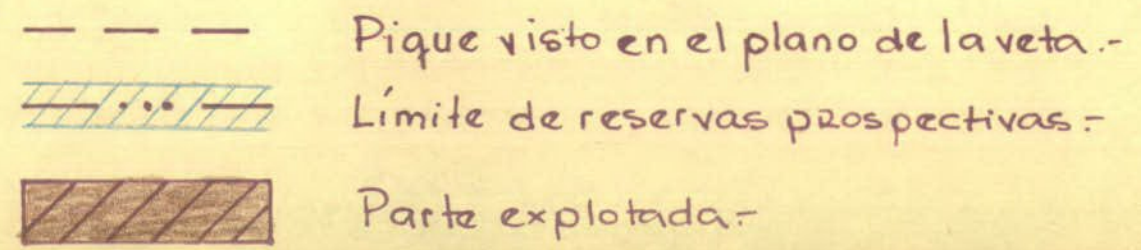 Pique visto en el plano de la veta.-
Límite de reservas prospectivas.-
Parte explotada.-